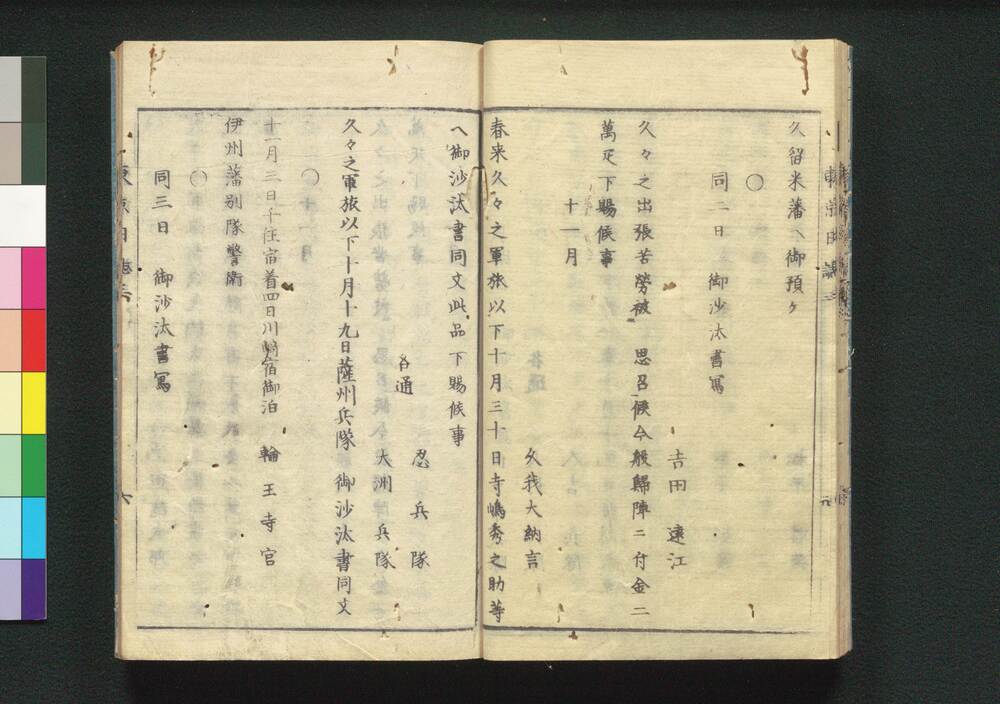 久留米藩ヘ御預ケ
〇
同二日　御沙汰書寫
吉田遠江
久々之出張苦勞被　思召候今般歸陣ニ付金二
萬疋下賜候事
十一月
久我大納言
春来久々之軍旅以下十月三十日寺嶋秀之助等
ヘ御沙汰書同文此品下賜候事
忍兵隊
各通
大洲兵隊
久々之軍旅以下十月十九日薩州兵隊　御沙汰書同文
〇
十一月三日千住宿着四日川崎宿御泊　輪王寺宮
伊州藩別隊警衛
〇
同三日　御沙汰書寫
六